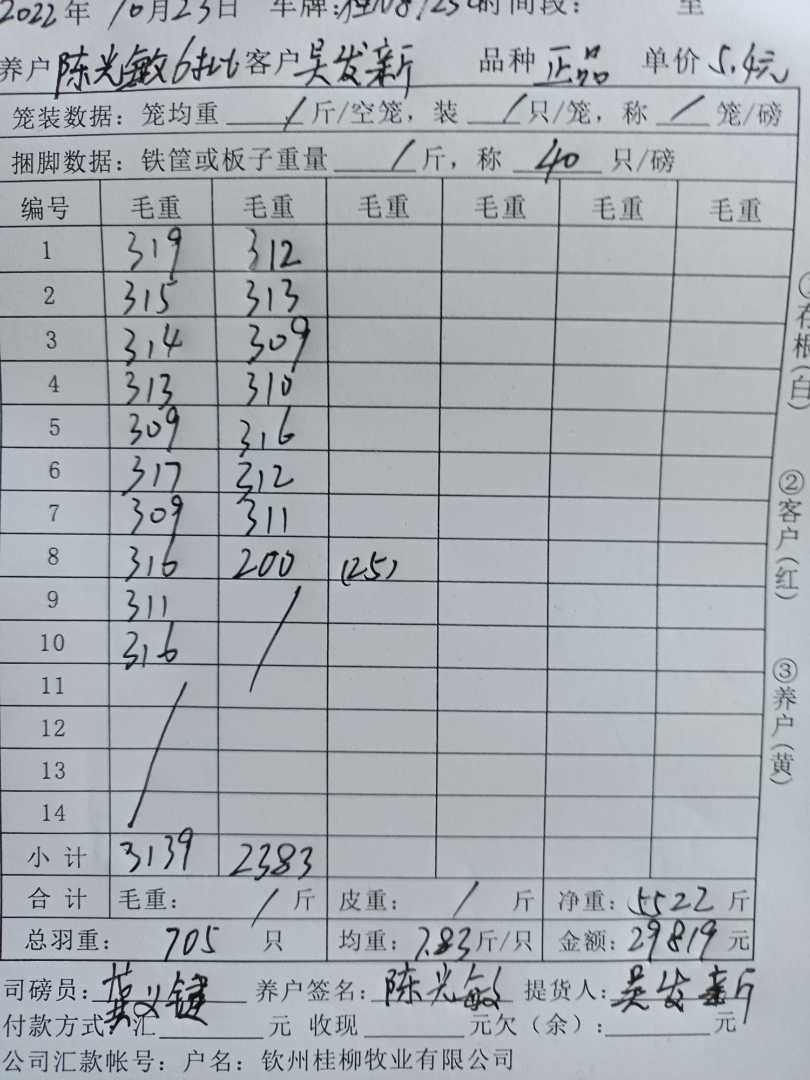 2022年 10月23日 车牌: 时间段: 至
养户 陈光敏6批 客户 吴发新 品种 正品 单价 5.4元
笼装数据: 笼均重 / 斤/空笼, 装 / 只/笼, 称 / 笼/磅
捆脚数据: 铁筐或板子重量 / 斤, 称 40 只/磅
编号 毛重 毛重 毛重 毛重 毛重 毛重
1 319 312
2 315 313
3 314 309
4 313 310
5 309 316
6 317 312
7 309 311
8 316 200 (25)
9 311 /
10 316
11 /
12
13
14
小计 3139 2383
合计 毛重: / 斤 皮重: / 斤 净重: 5522 斤
总羽重: 705 只 均重: 7.83斤/只 金额: 29819 元
司磅员: 养户签名: 陈光敏 提货人: 吴发新
付款方式: 汇 元 收现 元欠(余): 元
公司汇款帐号: 户名: 钦州桂柳牧业有限公司
①存根(白) ②客户(红) ③养户(黄)